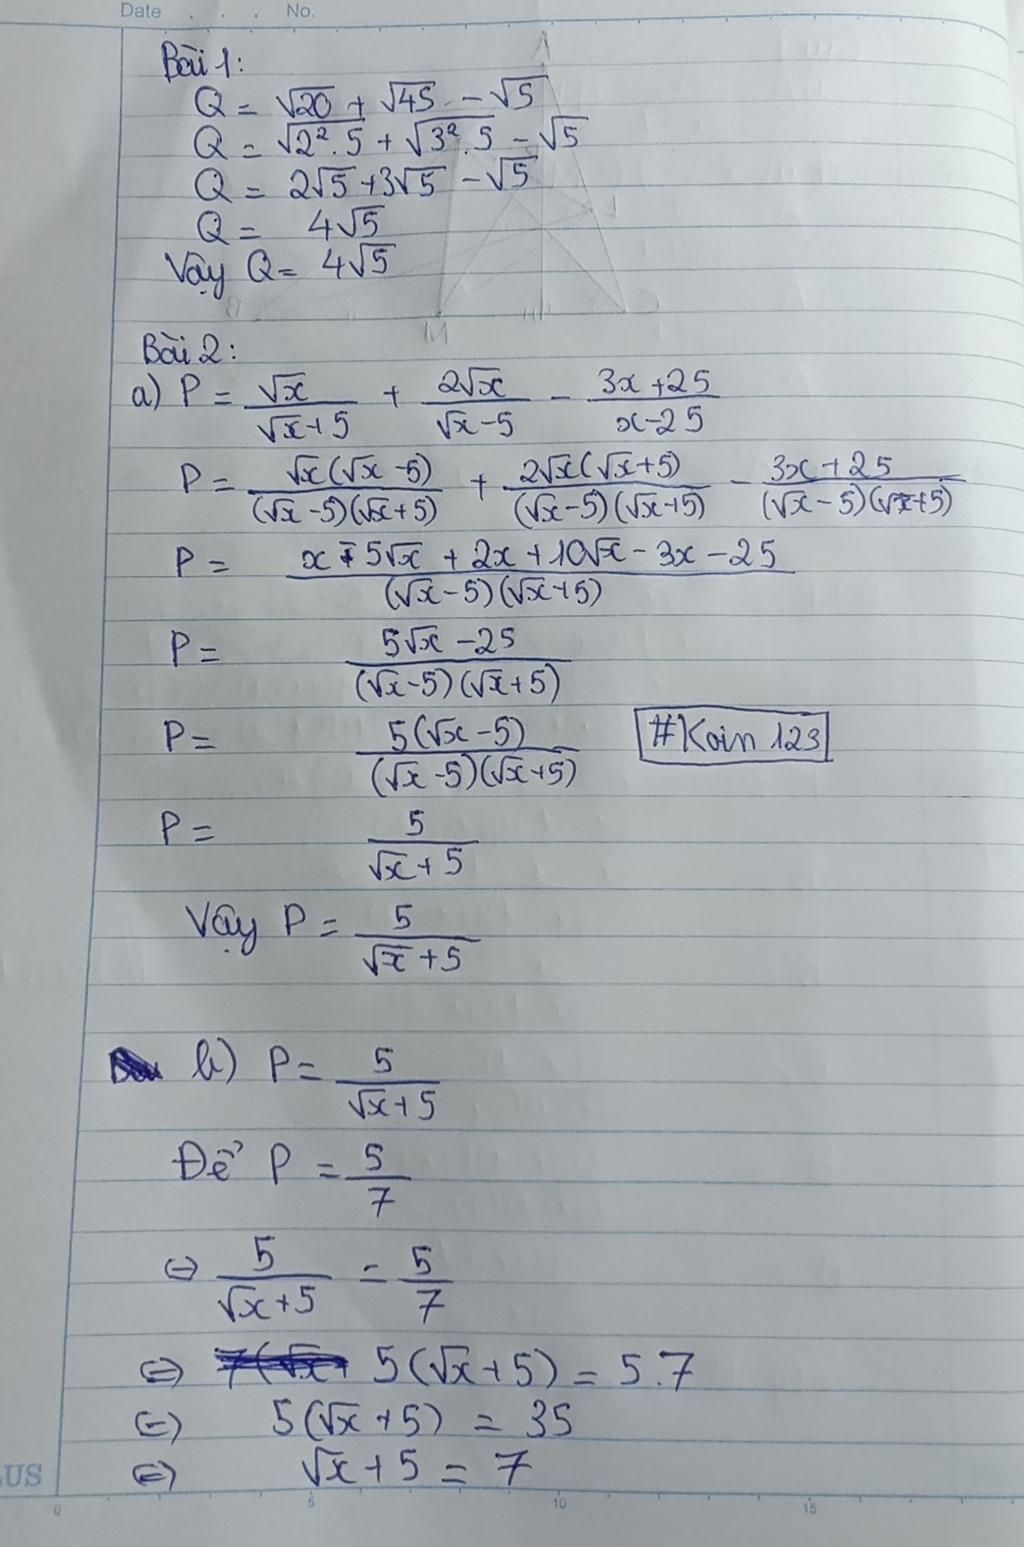 Date . . . No.
A
Bài 1:
Q = √20 + √45 - √5
Q = √2².5 + √3².5 - √5
Q = 2√5 + 3√5 - √5
Q = 4√5
Vậy Q = 4√5
B M C
Bài 2:
a) P = √x/(√x+5) + 2√x/(√x-5) - (3x+25)/(x-25)
P = √x(√x-5)/((√x-5)(√x+5)) + 2√x(√x+5)/((√x-5)(√x+5)) - (3x+25)/((√x-5)(√x+5))
P = (x-5√x + 2x + 10√x - 3x - 25)/((√x-5)(√x+5))
P = (5√x - 25)/((√x-5)(√x+5))
P = 5(√x-5)/((√x-5)(√x+5))
#Koin 123
P = 5/(√x+5)
Vậy P = 5/(√x+5)
b) P = 5/(√x+5)
Để P = 5/7
⇔ 5/(√x+5) = 5/7
⇔ 5(√x+5) = 5.7
⇔ 5(√x+5) = 35
⇔ √x+5 = 7
LUS
0 5 10 15